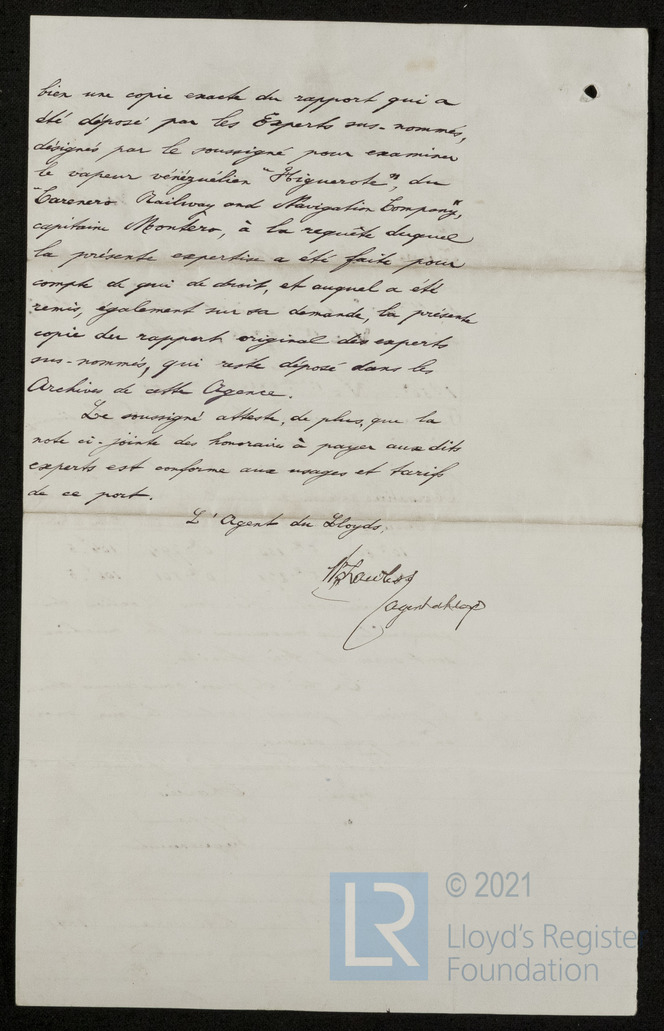 bien une copie exacte du rapport qui a
été déposé par les Experts sus-nommés,
désignés par le soussigné pour examiner
le vapeur vénézuélien "Higuerote", du
"Carenero Railway and Navigation Company",
capitaine Montéro, à la requête duquel
la présente expertise a été faite pour
compte de qui de droit, et auquel a été
remis, également sur sa demande, la présente
copie du rapport original des experts
sus-nommés, qui reste déposé dans les
Archives de cette Agence.
Le soussigné atteste, de plus, que la
note ci-jointe des honoraires à payer aux dits
experts est conforme aux usages et tarifs
de ce port.
L'Agent du Lloyds,
© 2021
Lloyd's Registe
Foundation
LR